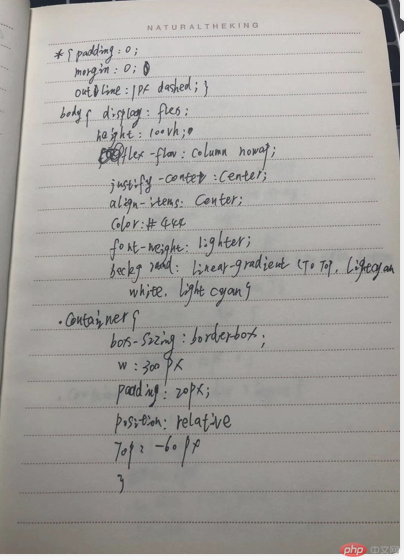 NATURALTHEKING
*{ padding: 0;
margin: 0;
outline: 1px dashed; }
body{ display: flex;
height: 100vh;
flex-flow: column nowrap;
justify-center: center;
align-items: center;
color: #444
font-weight: lighter;
background: linear-gradient (To Top, lightcyan
white, lightcyan}
.Container{
box-sizing: borderbox;
w: 300px
padding: 20px;
position: relative
Top: -60px
}
php 中文网